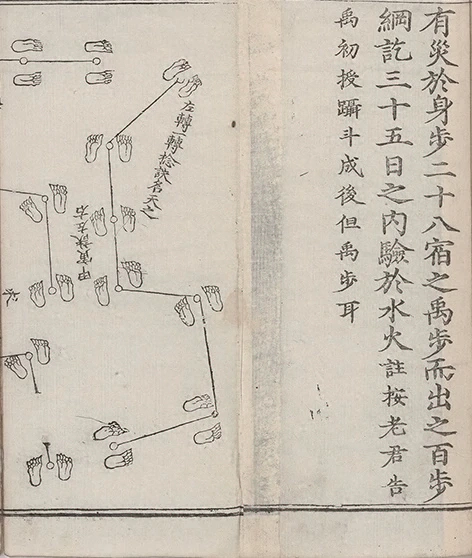 有災於身步二十八宿之禹步而出之百步
綱訖三十五日之內驗於水火註按老君告
禹初授躡斗成後但禹步耳
左轉一轉捻訣者天之